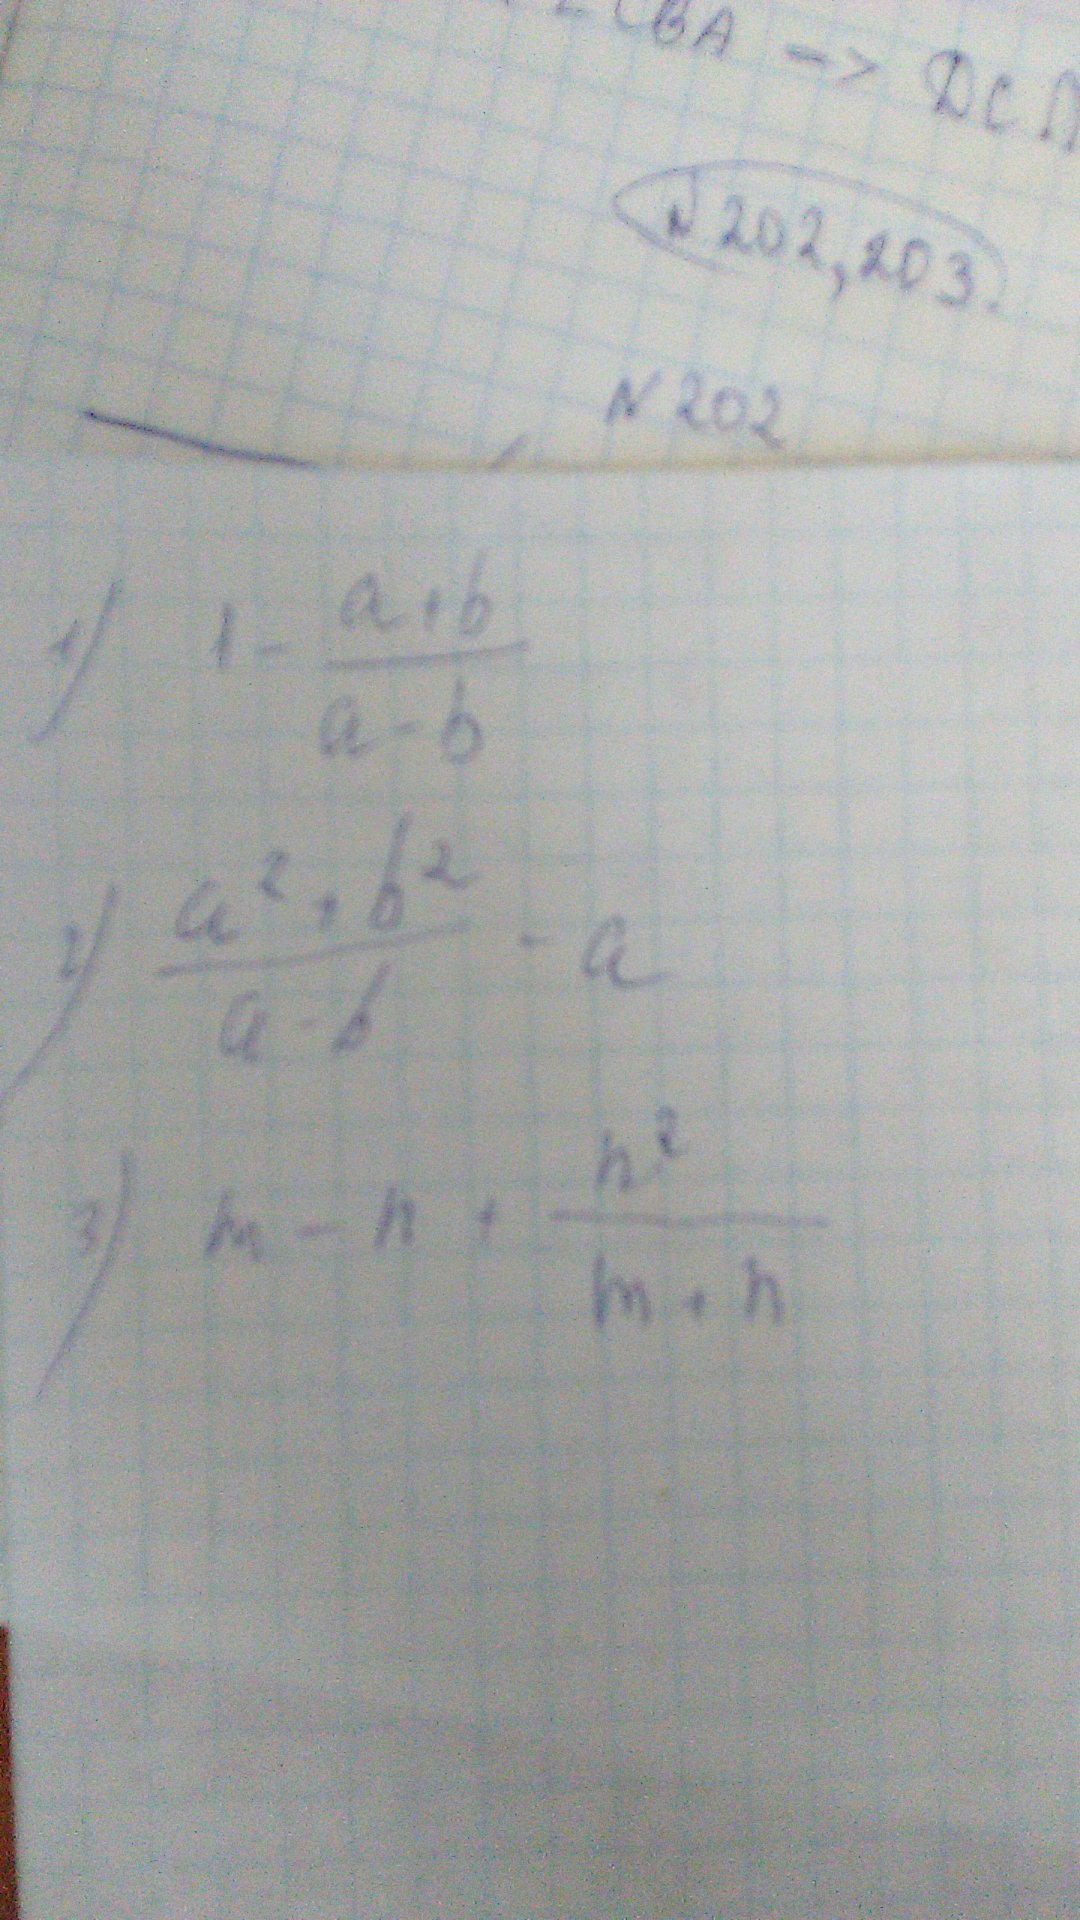 CBA -> DC
N 202, 203.
N 202
1) 1 - \frac{a+b}{a-b}
2) \frac{a² + b²}{a - b} - a
3) m - n + \frac{n²}{m + n}